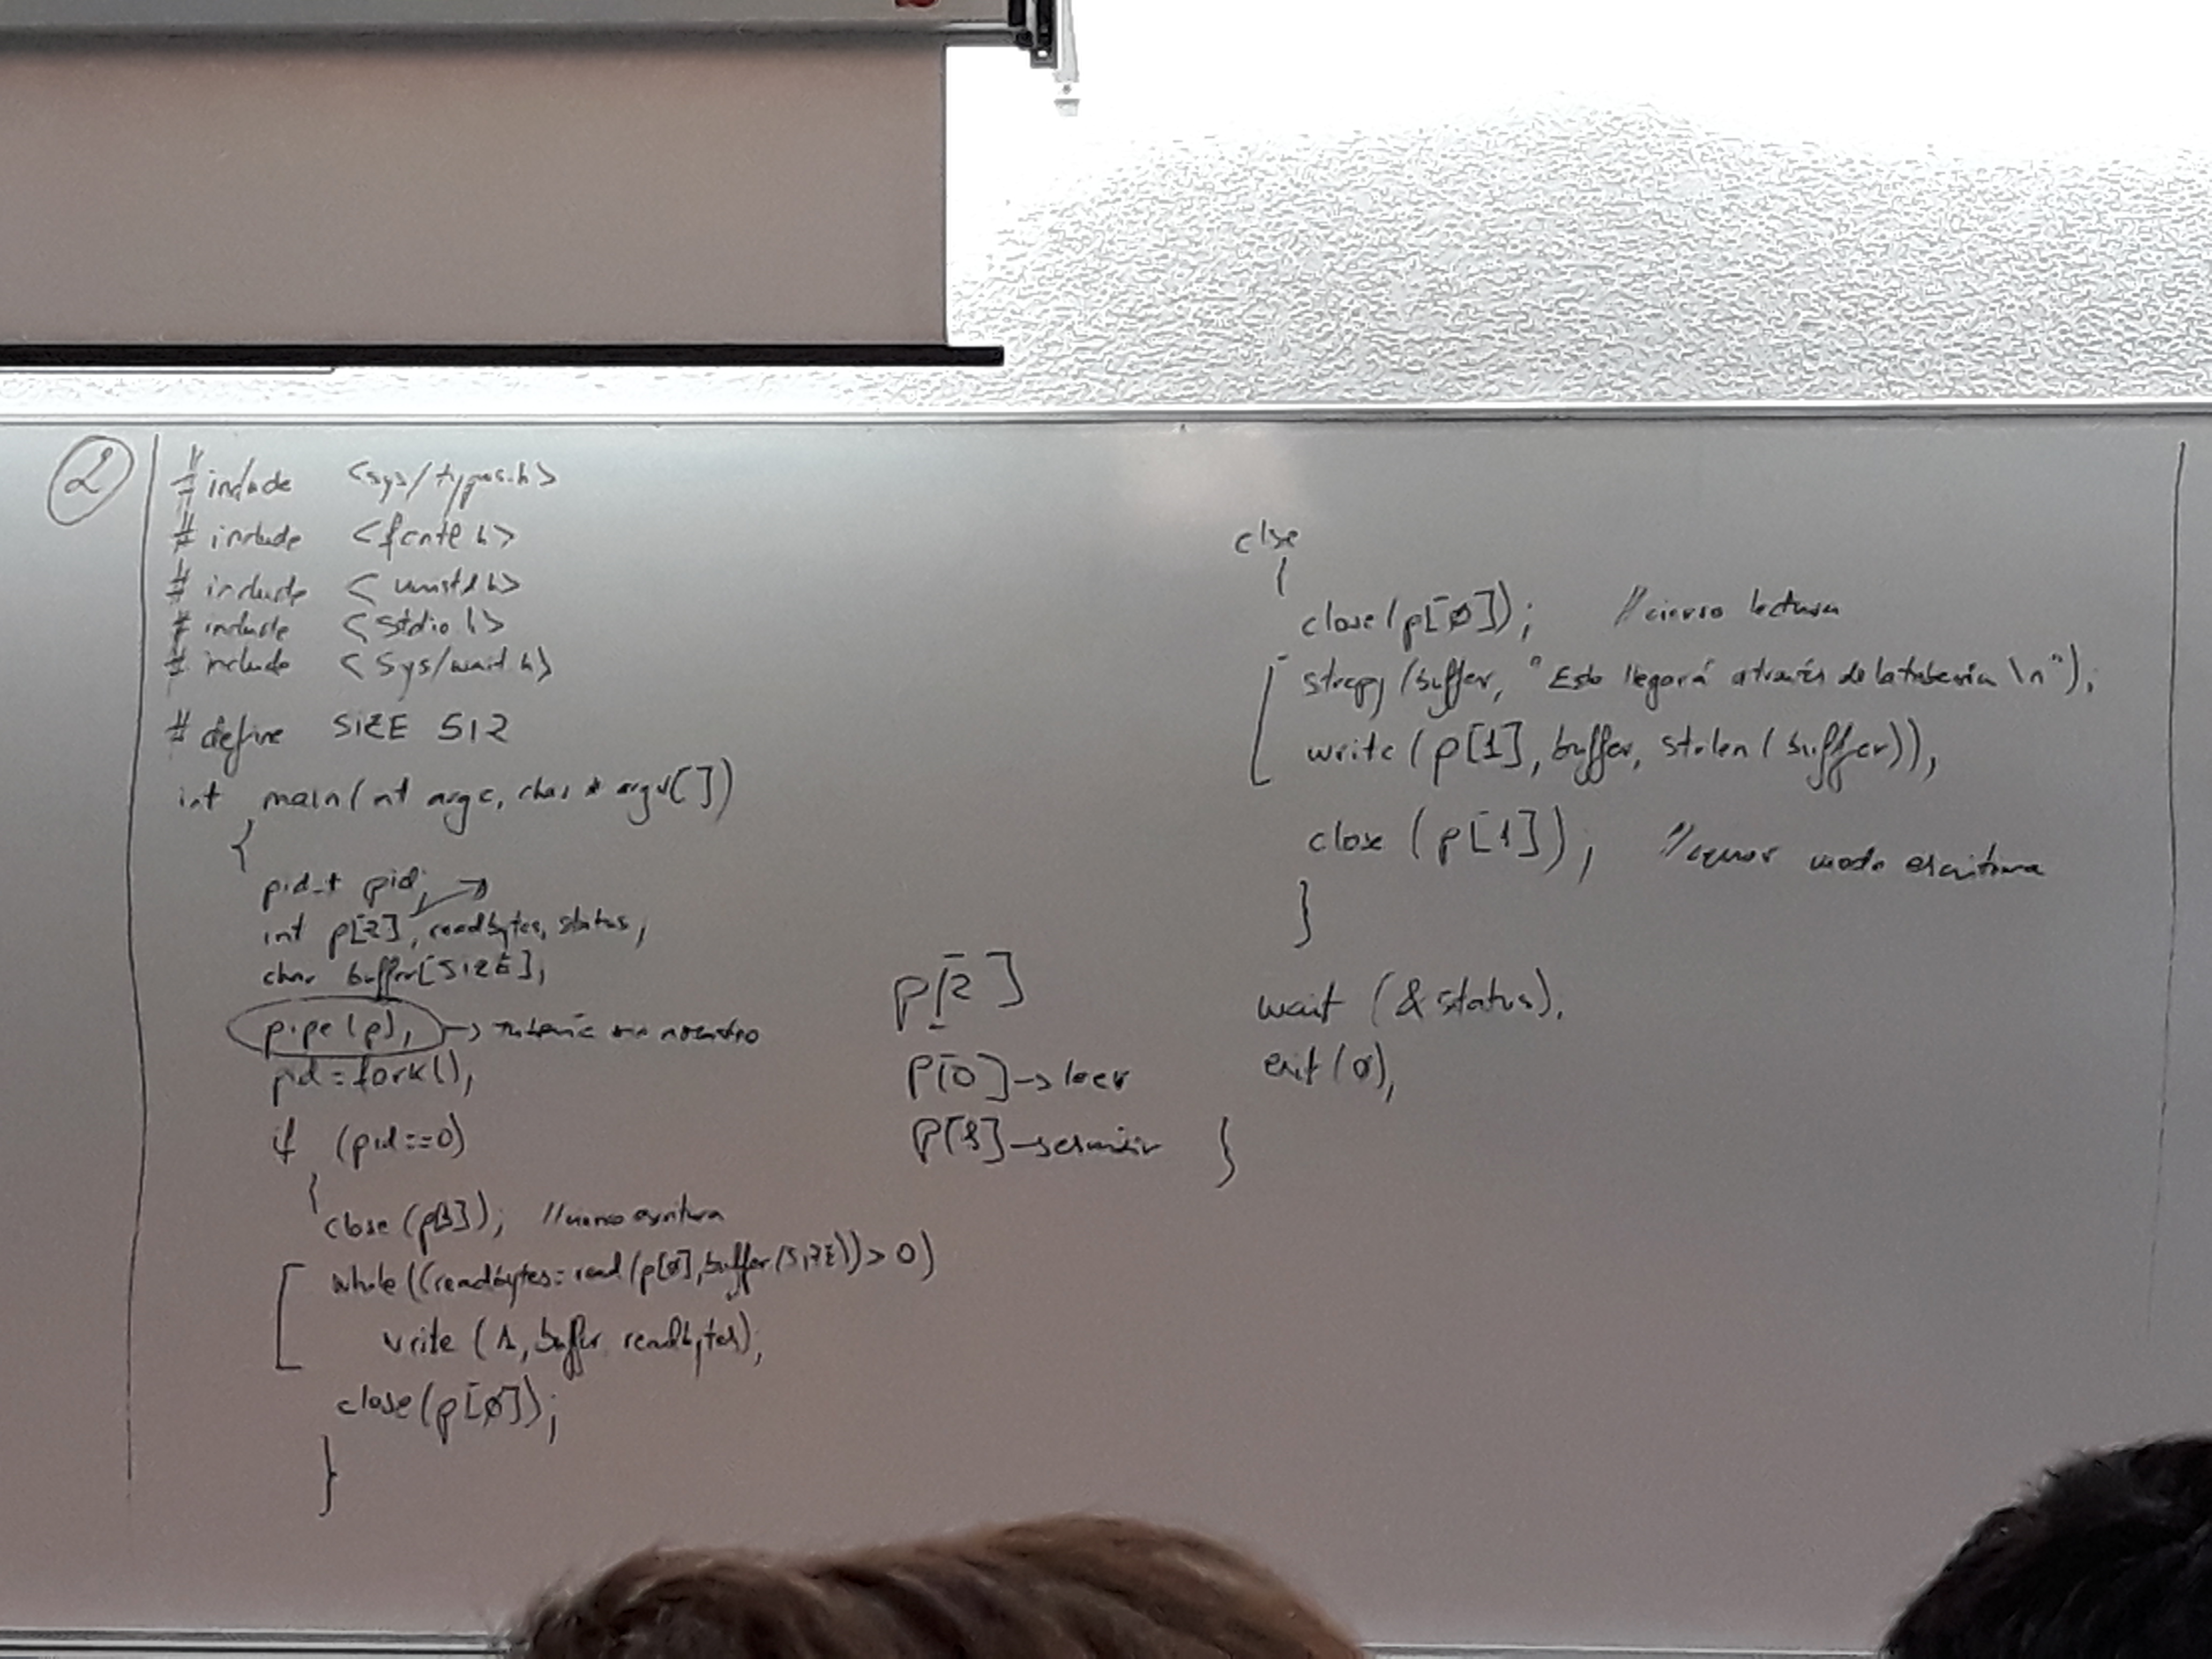 2
# include <sys/types.h>
# include <fcntl.h>
# include <unistd.h>
# include <stdio.h>
# include <sys/wait.h>
# define SIZE 512
int main(int argc, char * argv[])
{
pid_t pid;
int p[2], readbytes, status;
char buffer[SIZE];
pipe(p); → tubería sin nombre
pid=fork();
if (pid==0)
{
close(p[1]); //cierro escritura
while((readbytes=read(p[0],buffer,SIZE))>0)
write (1, buffer, readbytes);
close(p[0]);
}
p[2]
p[0] → leer
p[1] → escribir
else
{
close(p[0]); //cierro lectura
strcpy(buffer, "Esto llegará a través de la tuberia \n");
write (p[1], buffer, strlen(buffer));
close (p[1]); // modo escritura
}
wait (&status);
exit(0);
}